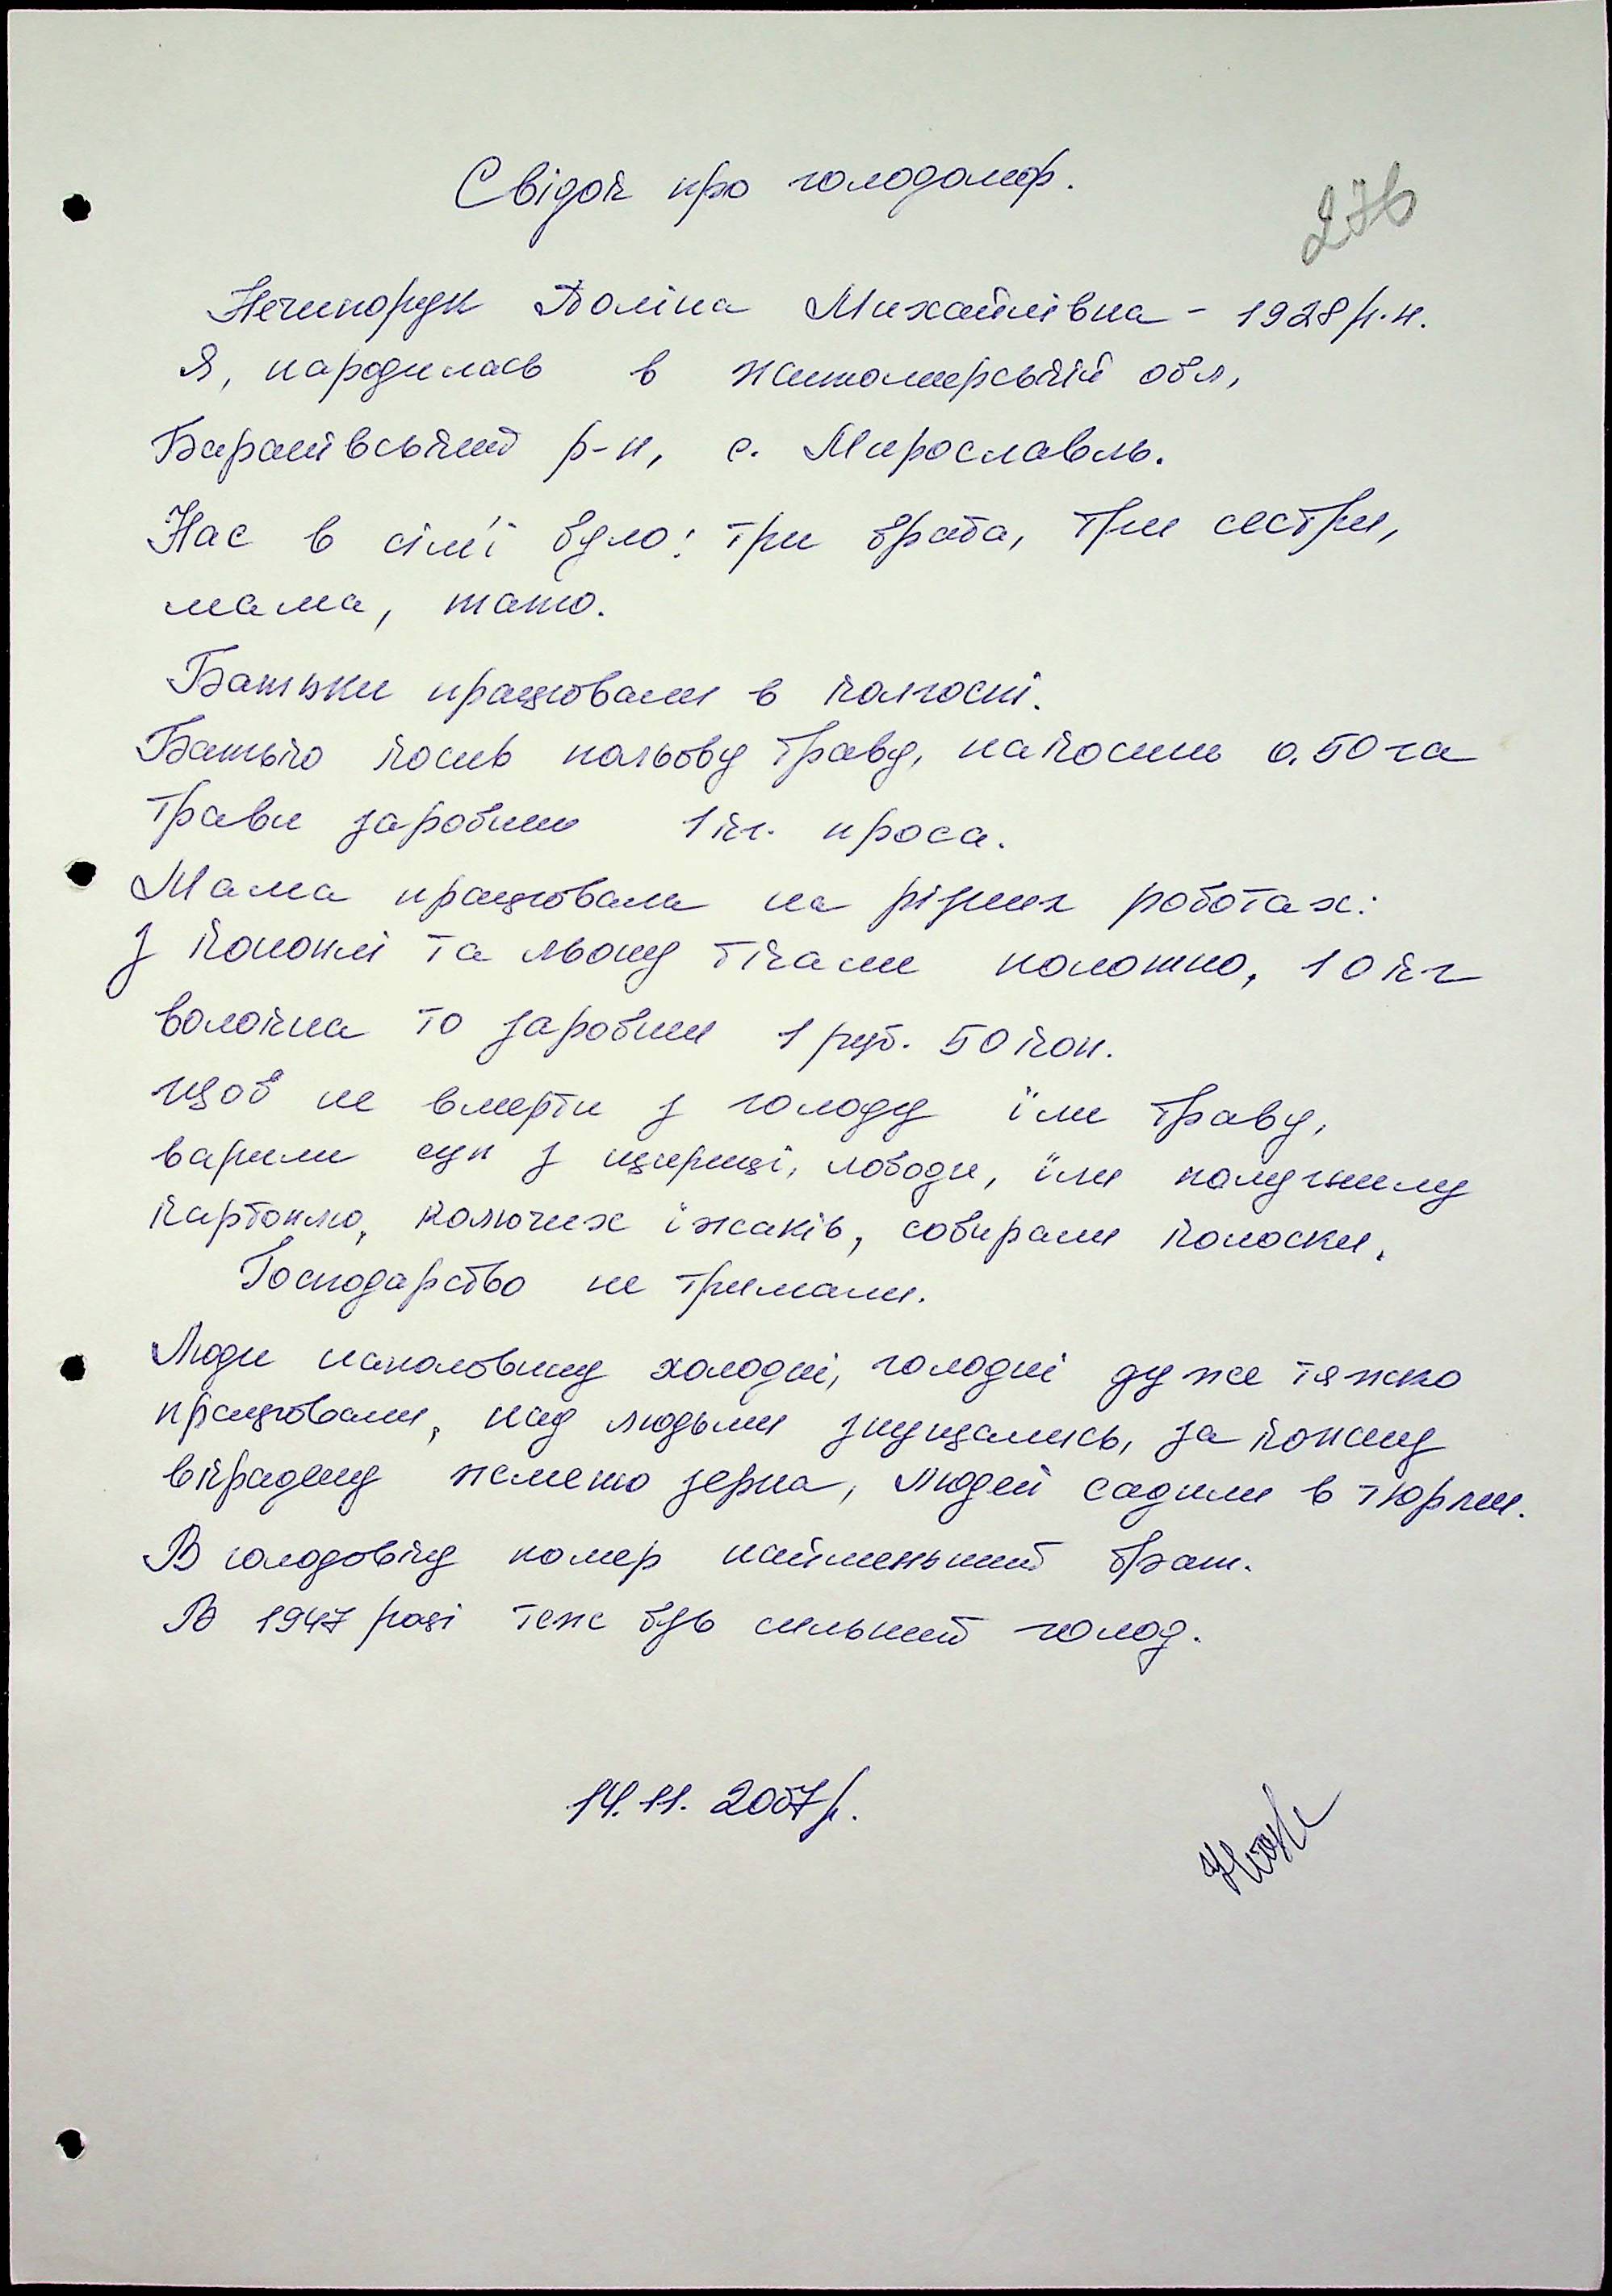 Свідок про голодомор.
276
Нечипорук Поліна Михайлівна - 1928 р.н.
Я, народилась в житомирській обл,
Баранівський р-н, с. Мирославль.
Нас в сім'ї було: три брата, три сестри,
мама, тато.
Батьки працювали в колгоспі.
Батько косив польову траву, накосить 0.50 га
трави заробить 1 кг. проса.
Мама працювала на різних роботах:
з коноплі та льону ткали полотно, 10 кг
волокна то заробиш 1 руб. 50 коп.
Щоб не вмерти з голоду їли траву,
варили суп з щириці, лободи, їли полугнилу
картоплю, колючих їжаків, собирали колоски.
Господарство не тримали.
Люди наполовину холодні, голодні дуже тяжко
працювали, над людьми знущались, за кожну
вкрадену жменю зерна, людей садили в тюрми.
В голодовку помер найменьший брат.
В 1947 році теж був сильний голод.
14.11. 2007 р.